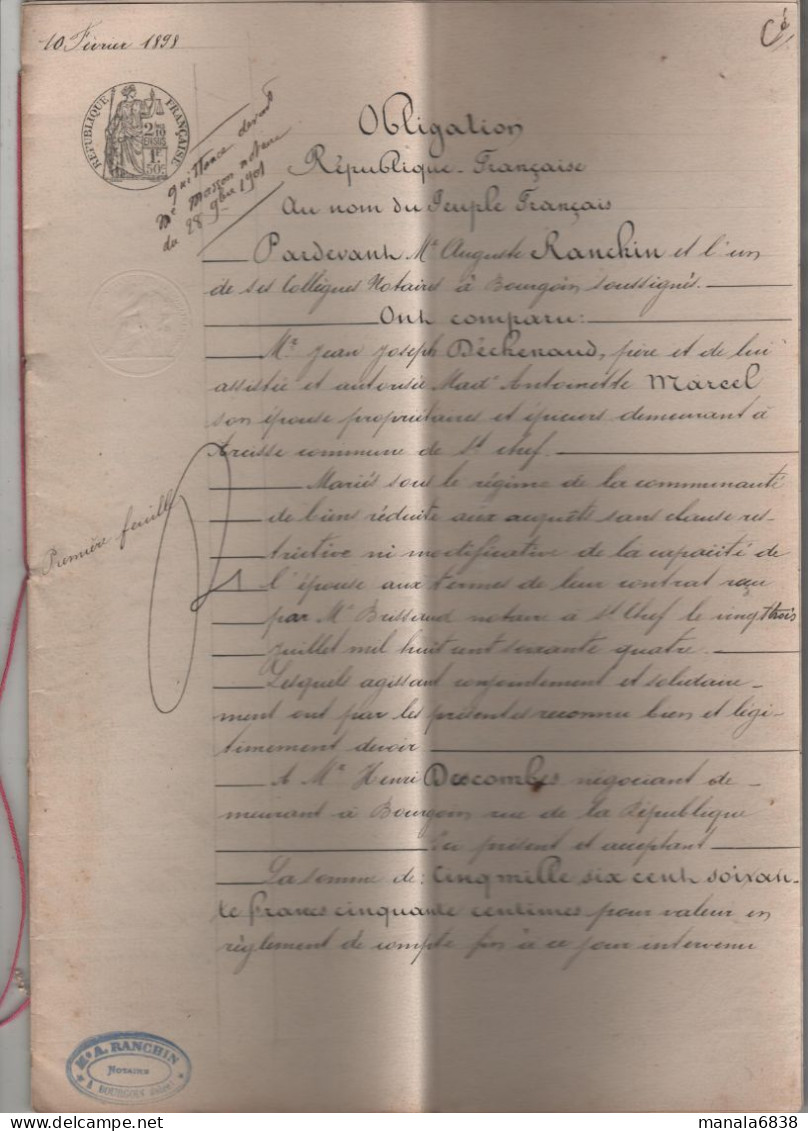 10 Février 1898
RÉPUBLIQUE FRANÇAISE
2/10
1F
50c
quittance devant
Me Masson notaire
du 28 9bre 1901
Obligation
République-Française
Au nom du Peuple Français
Pardevant Me Auguste Ranchin et l'un
de ses Collègues Notaires à Bourgoin soussignés.
Ont comparu:
Mr Jean Joseph Déchenaud, père et de lui
assistée et autorisée Made Antoinette Marcel
son épouse propriétaires et épiciers demeurant à
Arcisse commune de St Chef.
Mariés sous le régime de la communauté
de biens réduite aux acquêts sans clause res-
trictive ni modificative de la capacité de
l'épouse aux termes de leur contrat reçu
par Me Brissaud notaire à St Chef le vingt trois
Juillet mil huit cent soixante quatre.
Première feuille
Lesquels agissant conjointement et solidaire-
ment ont par les présentes reconnu bien et légi-
timement devoir
A Mr Henri Descombes négociant de-
meurant à Bourgoin rue de la République
Ici présent et acceptant
La somme de: Cinq mille six cent soixan-
te francs cinquante centimes pour valeur en
règlement de compte fin à ce jour intervenu
Me A. RANCHIN
NOTAIRE
A BOURGOIN (Isère)
manala6838